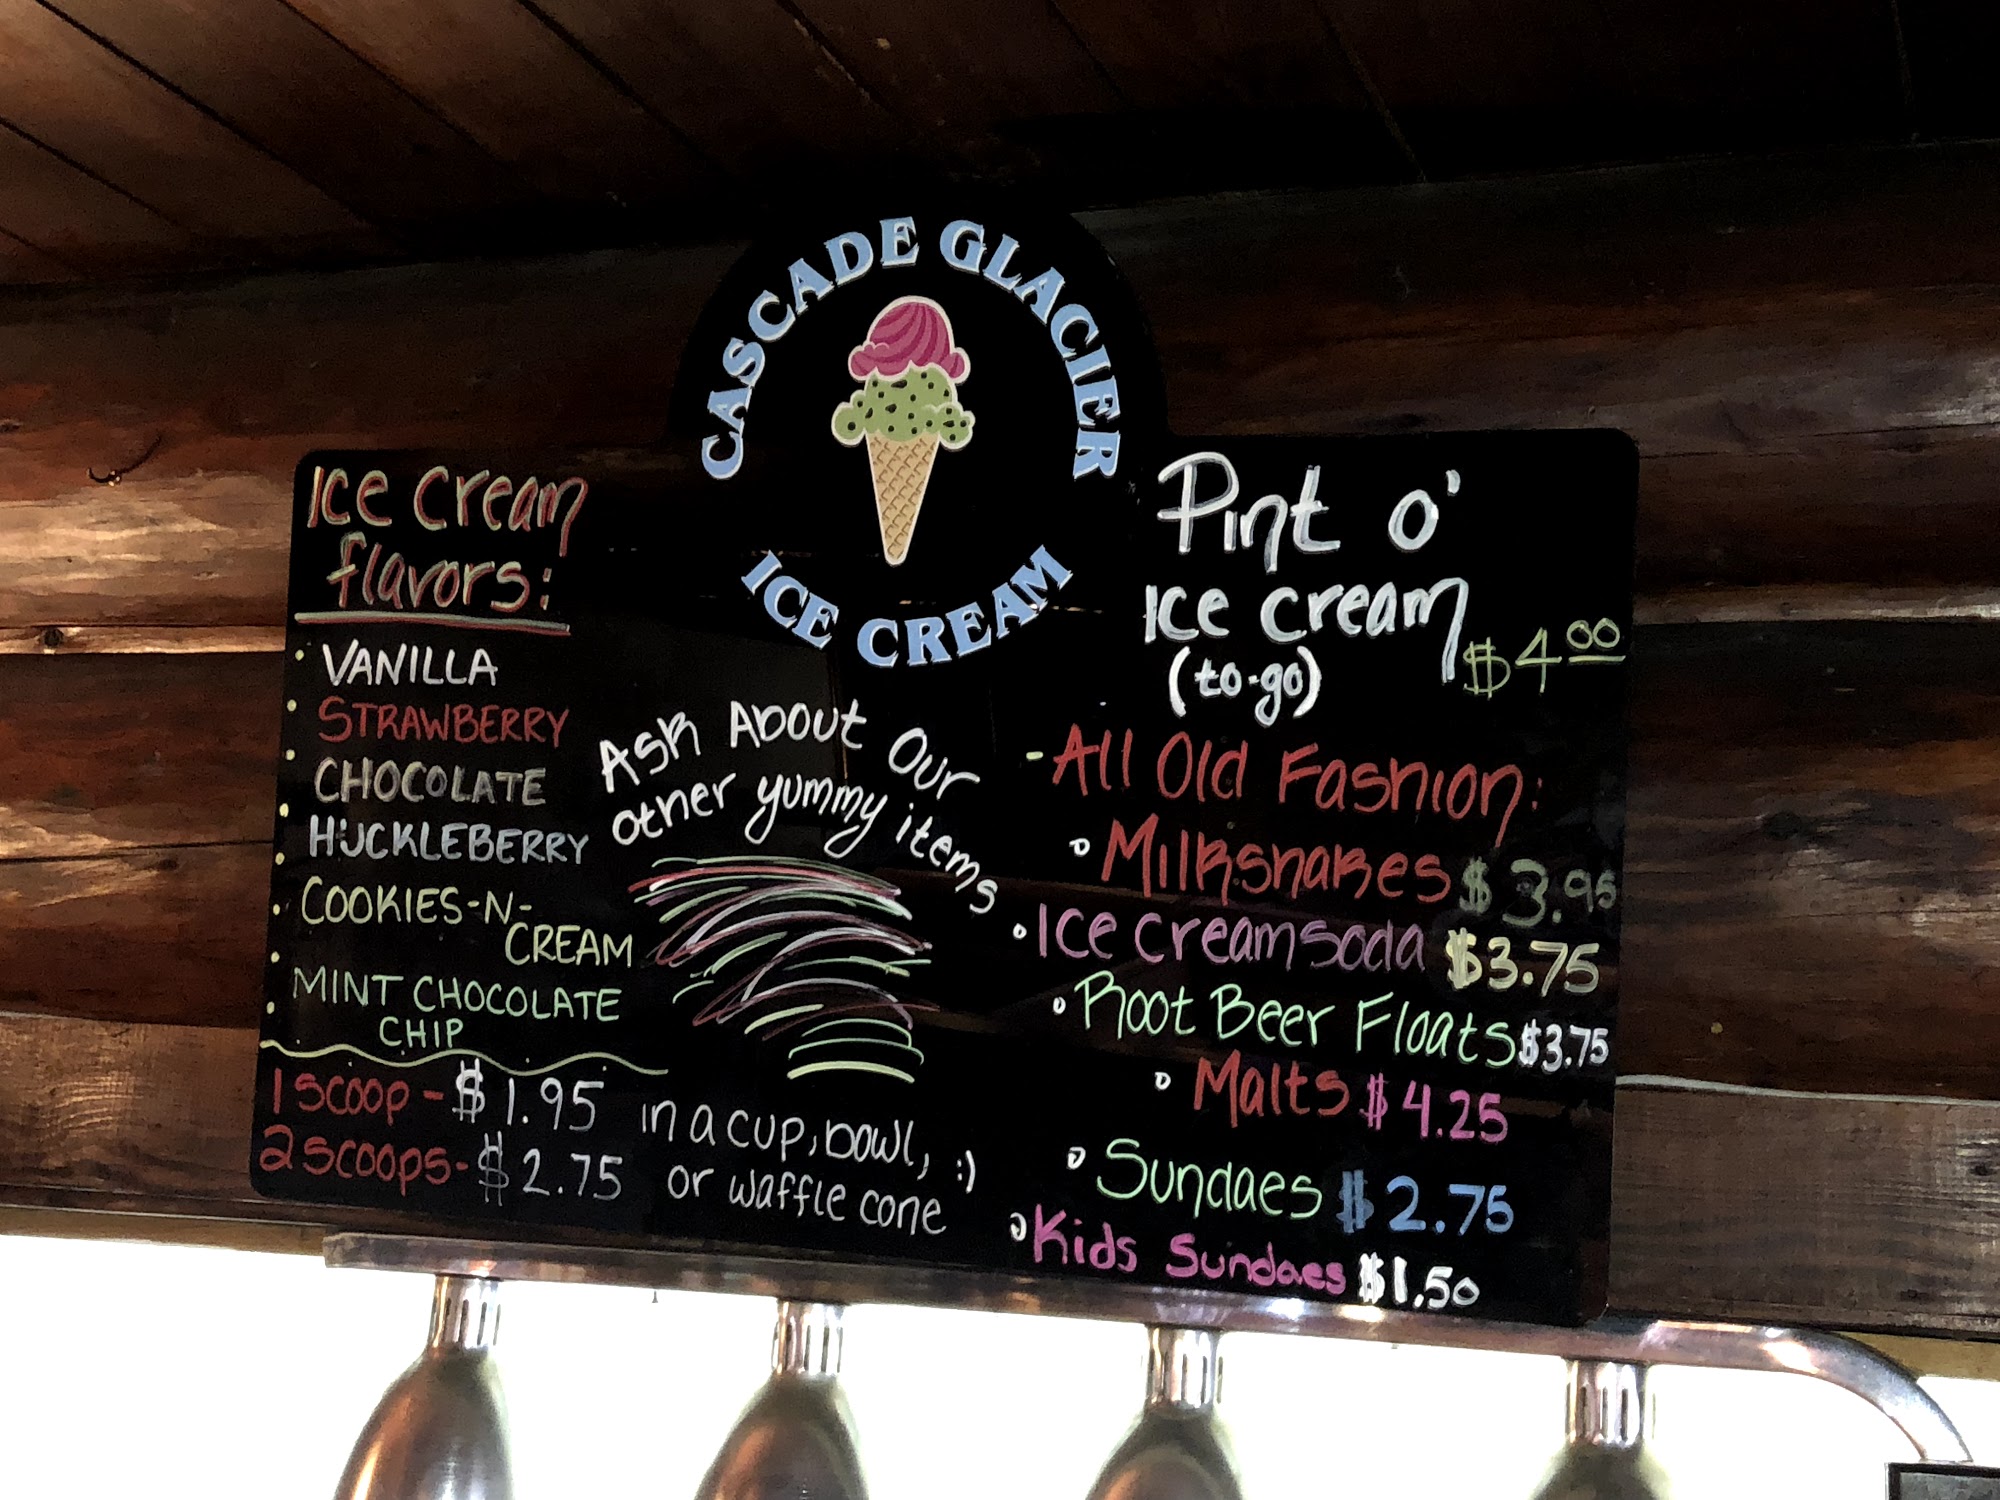 CASCADE GLACIER
ICE CREAM
Ice Cream
flavors:
VANILLA
STRAWBERRY
CHOCOLATE
HUCKLEBERRY
COOKIES-N-
CREAM
MINT CHOCOLATE
CHIP
1 SCOOP - $1.95
2 SCOOPS - $2.75
in a cup, bowl,
or waffle cone :)
Ask About Our
other yummy items
Pint o'
Ice cream
(to-go)
$4.00
- All Old Fashion:
Milkshakes $3.95
Ice cream soda $3.75
Root Beer Floats $3.75
Malts $4.25
Sundaes $2.75
Kids Sundaes $1.50